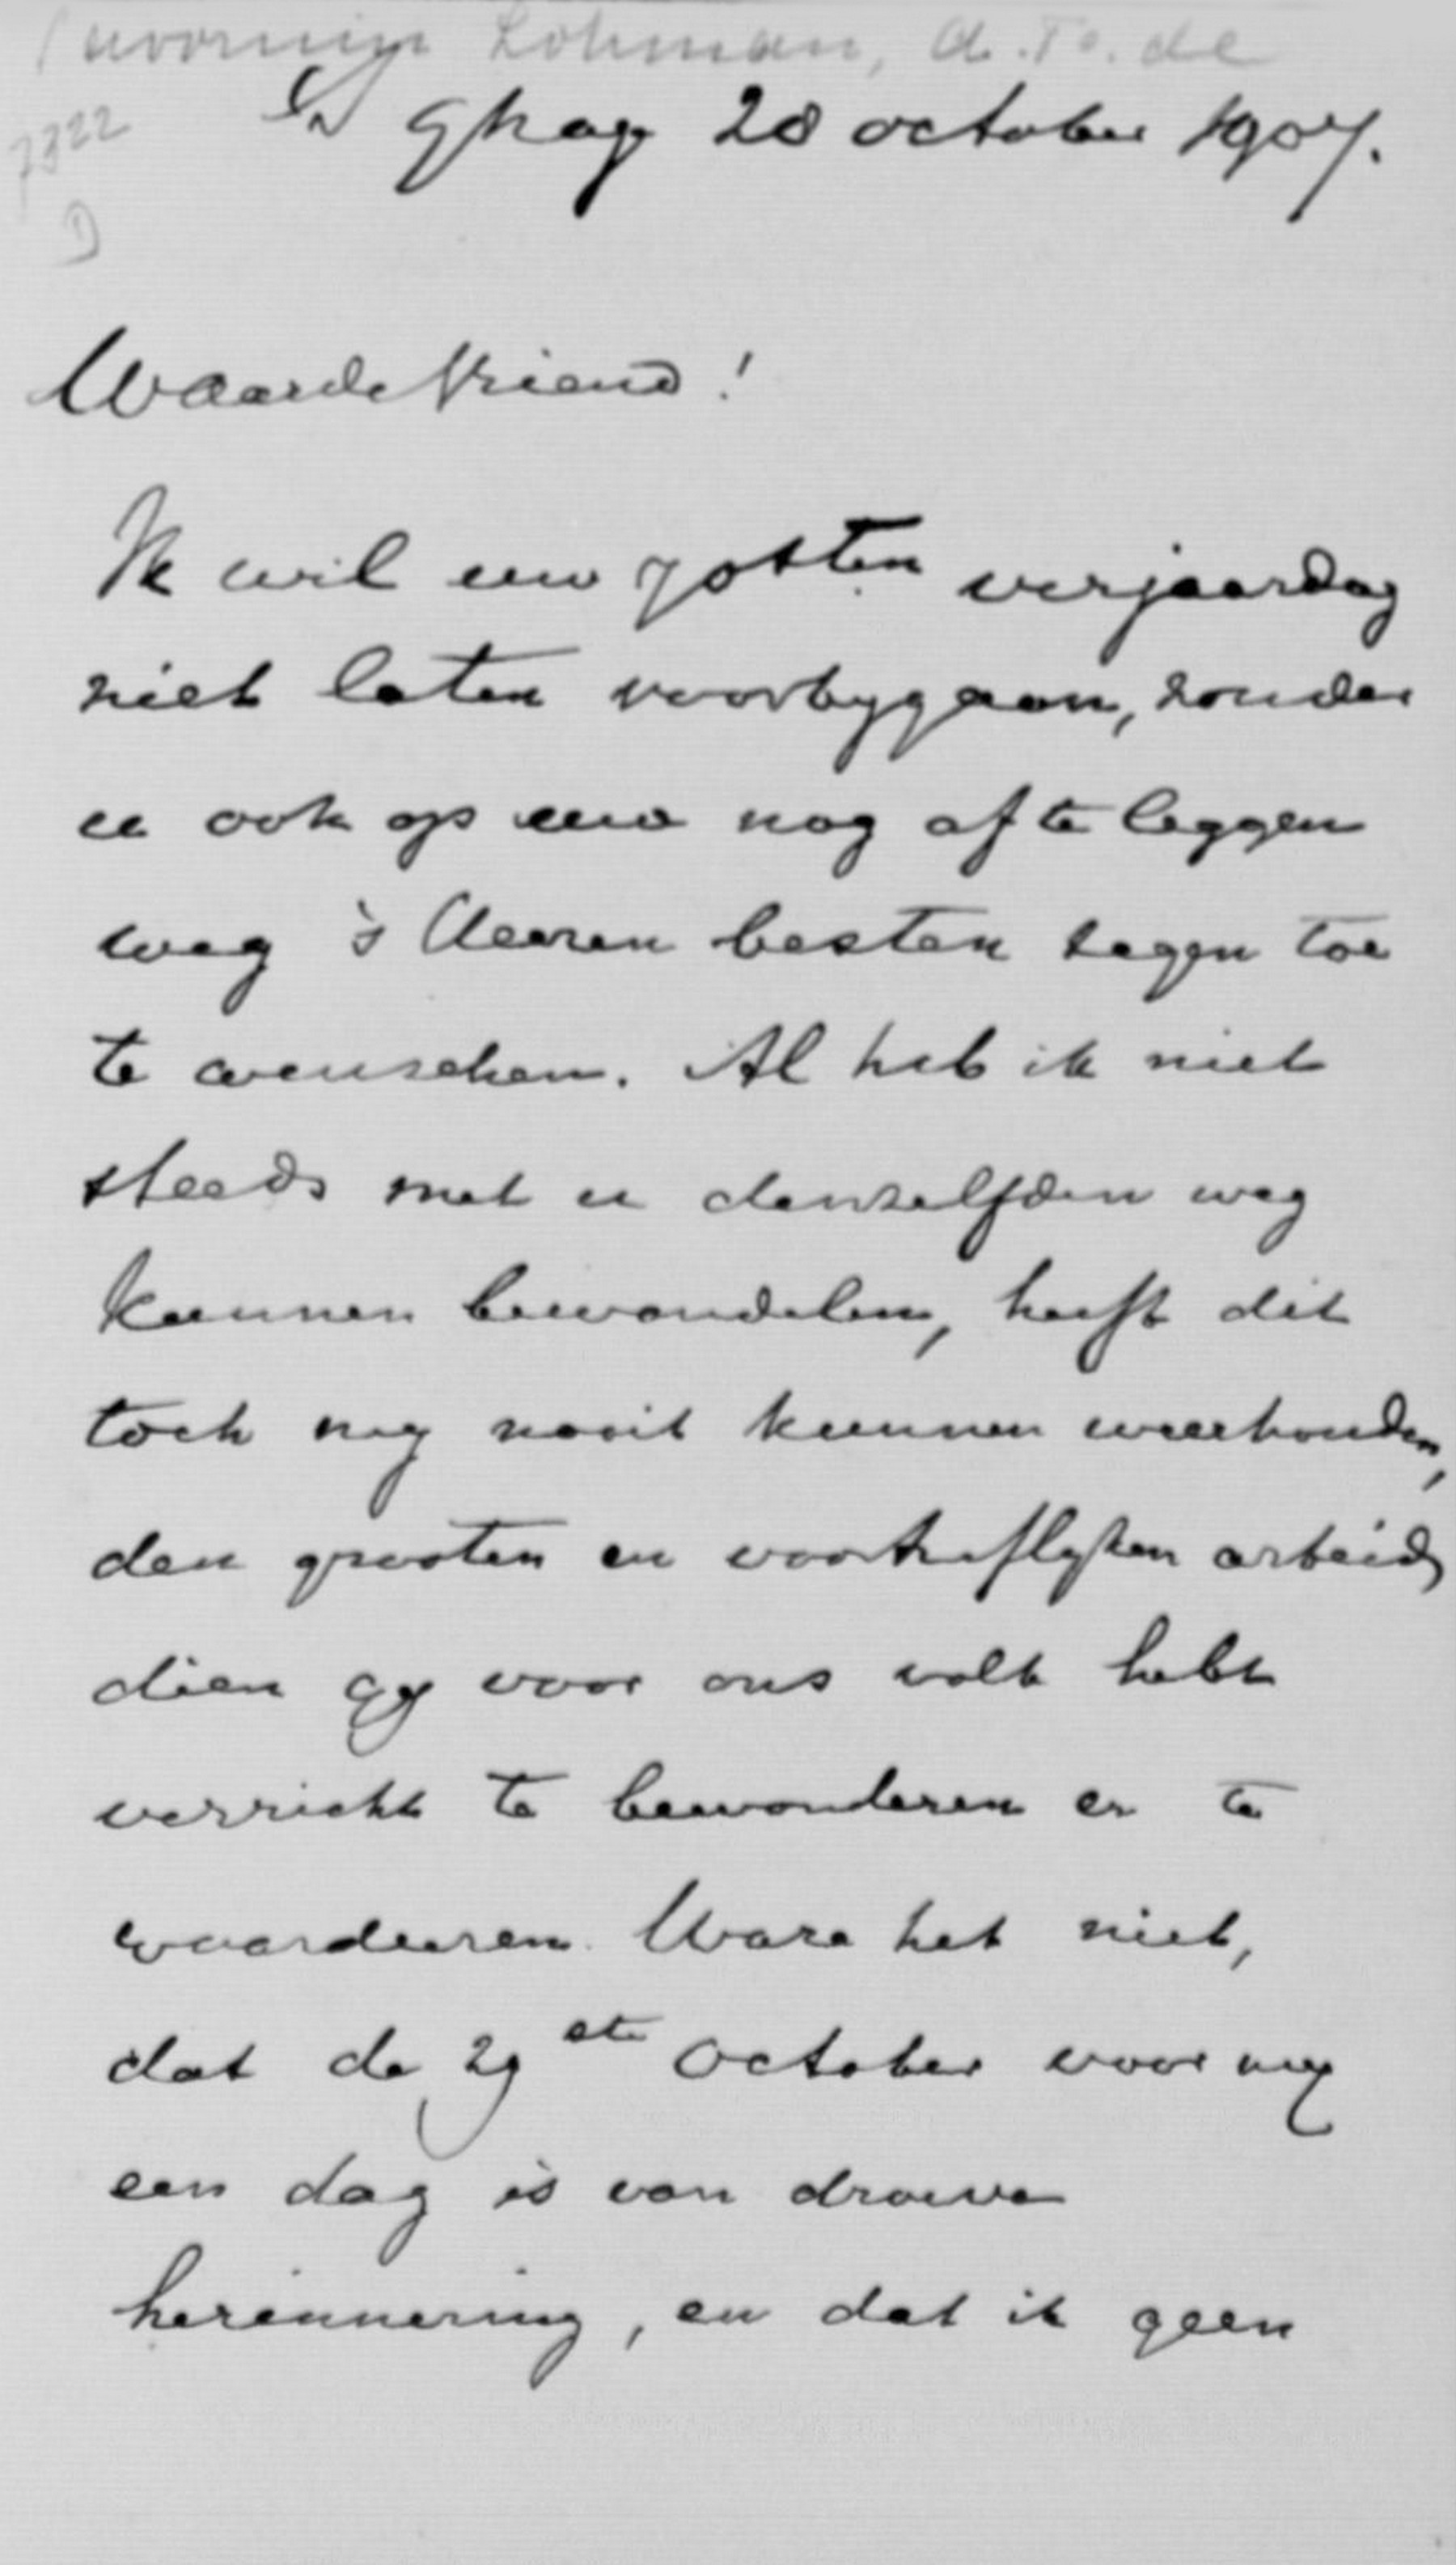 Savornin Lohman, A. F. de
7322
D
Ghage 28 october 1907.
Waarde Vriend!
Ik wil uw 70sten verjaardag
niet laten voorbygaan, zonder
u ook op uw nog af te leggen
weg 's Heeren besten zegen toe
te wenschen. Al heb ik niet
steeds met u denzelfden weg
kunnen bewandelen, heeft dit
toch my nooit kunnen weerhouden,
den grooten en voortreflyken arbeid,
dien gy voor ons volk hebt
verricht te bewonderen en te
waardeeren. Ware het niet,
dat de 29ste October voor my
een dag is van droeve
herinnering, en dat ik geen